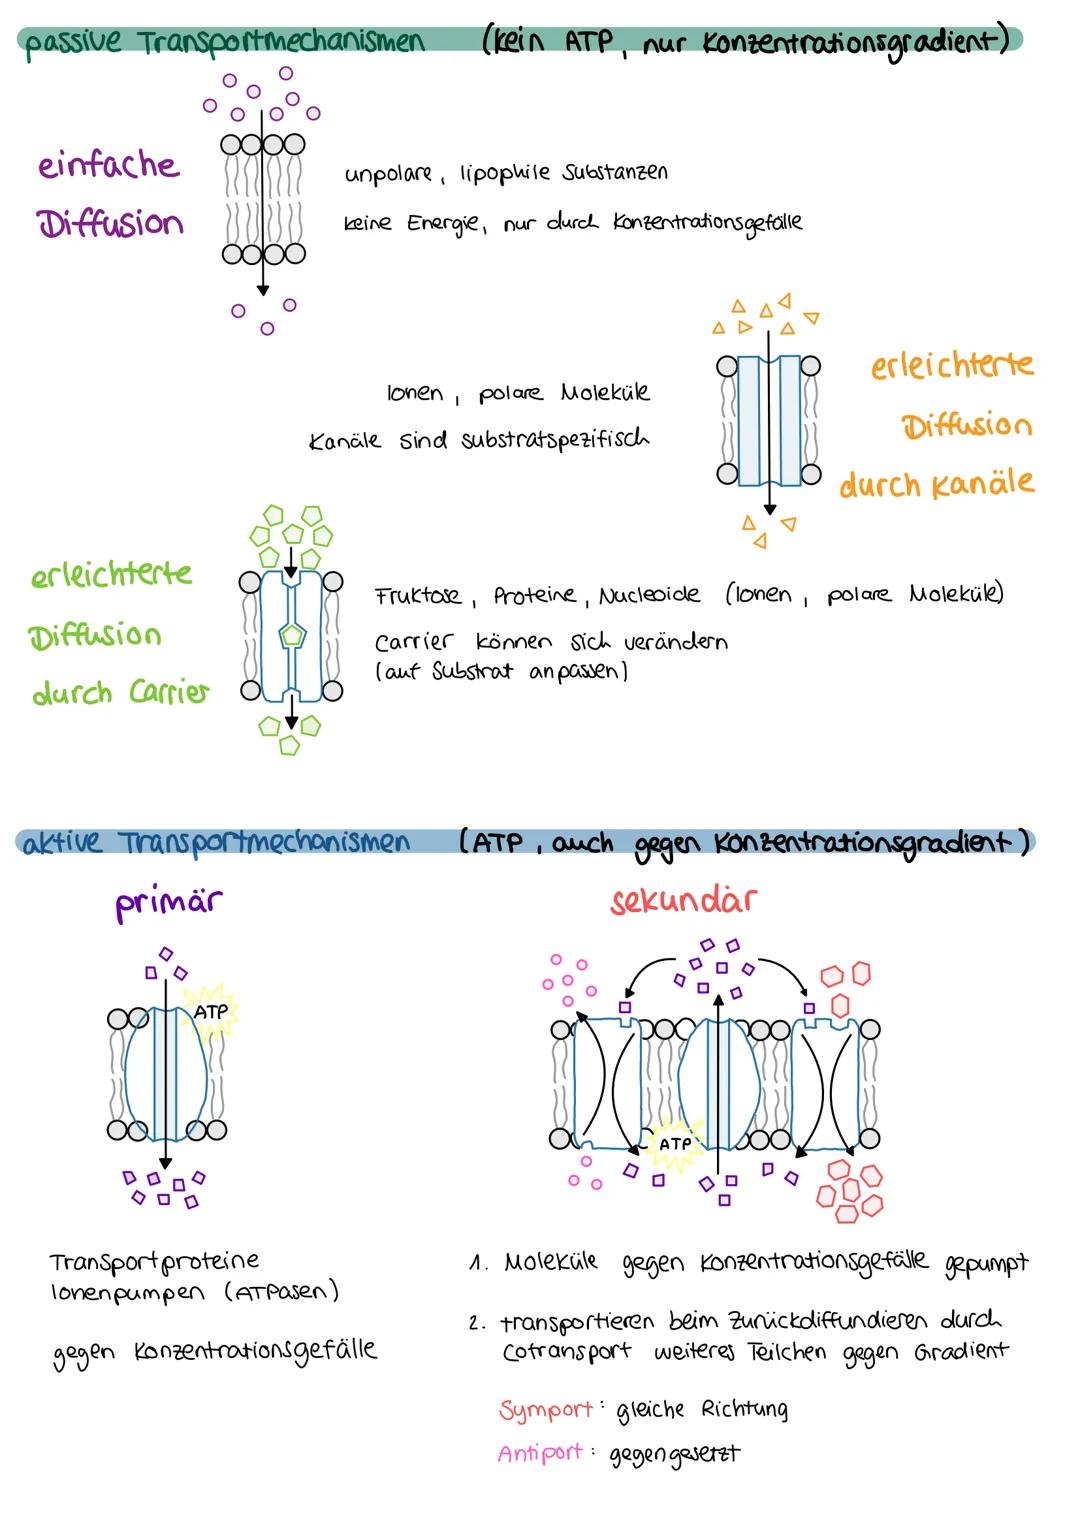 passive Transportmechanismen (kein ATP, nur Konzentrationsgradient)
einfache
Diffusion
unpolare, lipophile Substanzen
keine Energie, nur durch Konzentrationsgefälle
erleichterte
Diffusion
durch Kanäle
Ionen, polare Moleküle
Kanäle sind substratspezifisch
erleichterte
Diffusion
durch Carrier
Fruktose, Proteine, Nucleoide (Ionen, polare Moleküle)
Carrier können sich verändern
(auf Substrat anpassen)
aktive Transportmechanismen (ATP, auch gegen Konzentrationsgradient)
primär
ATP
Transportproteine
Ionenpumpen (ATPasen)
gegen Konzentrationsgefälle
sekundär
ATP
1. Moleküle gegen Konzentrationsgefälle gepumpt
2. transportieren beim Zurückdiffundieren durch
Cotransport weiteres Teilchen gegen Gradient
Symport: gleiche Richtung
Antiport: gegengesetzt